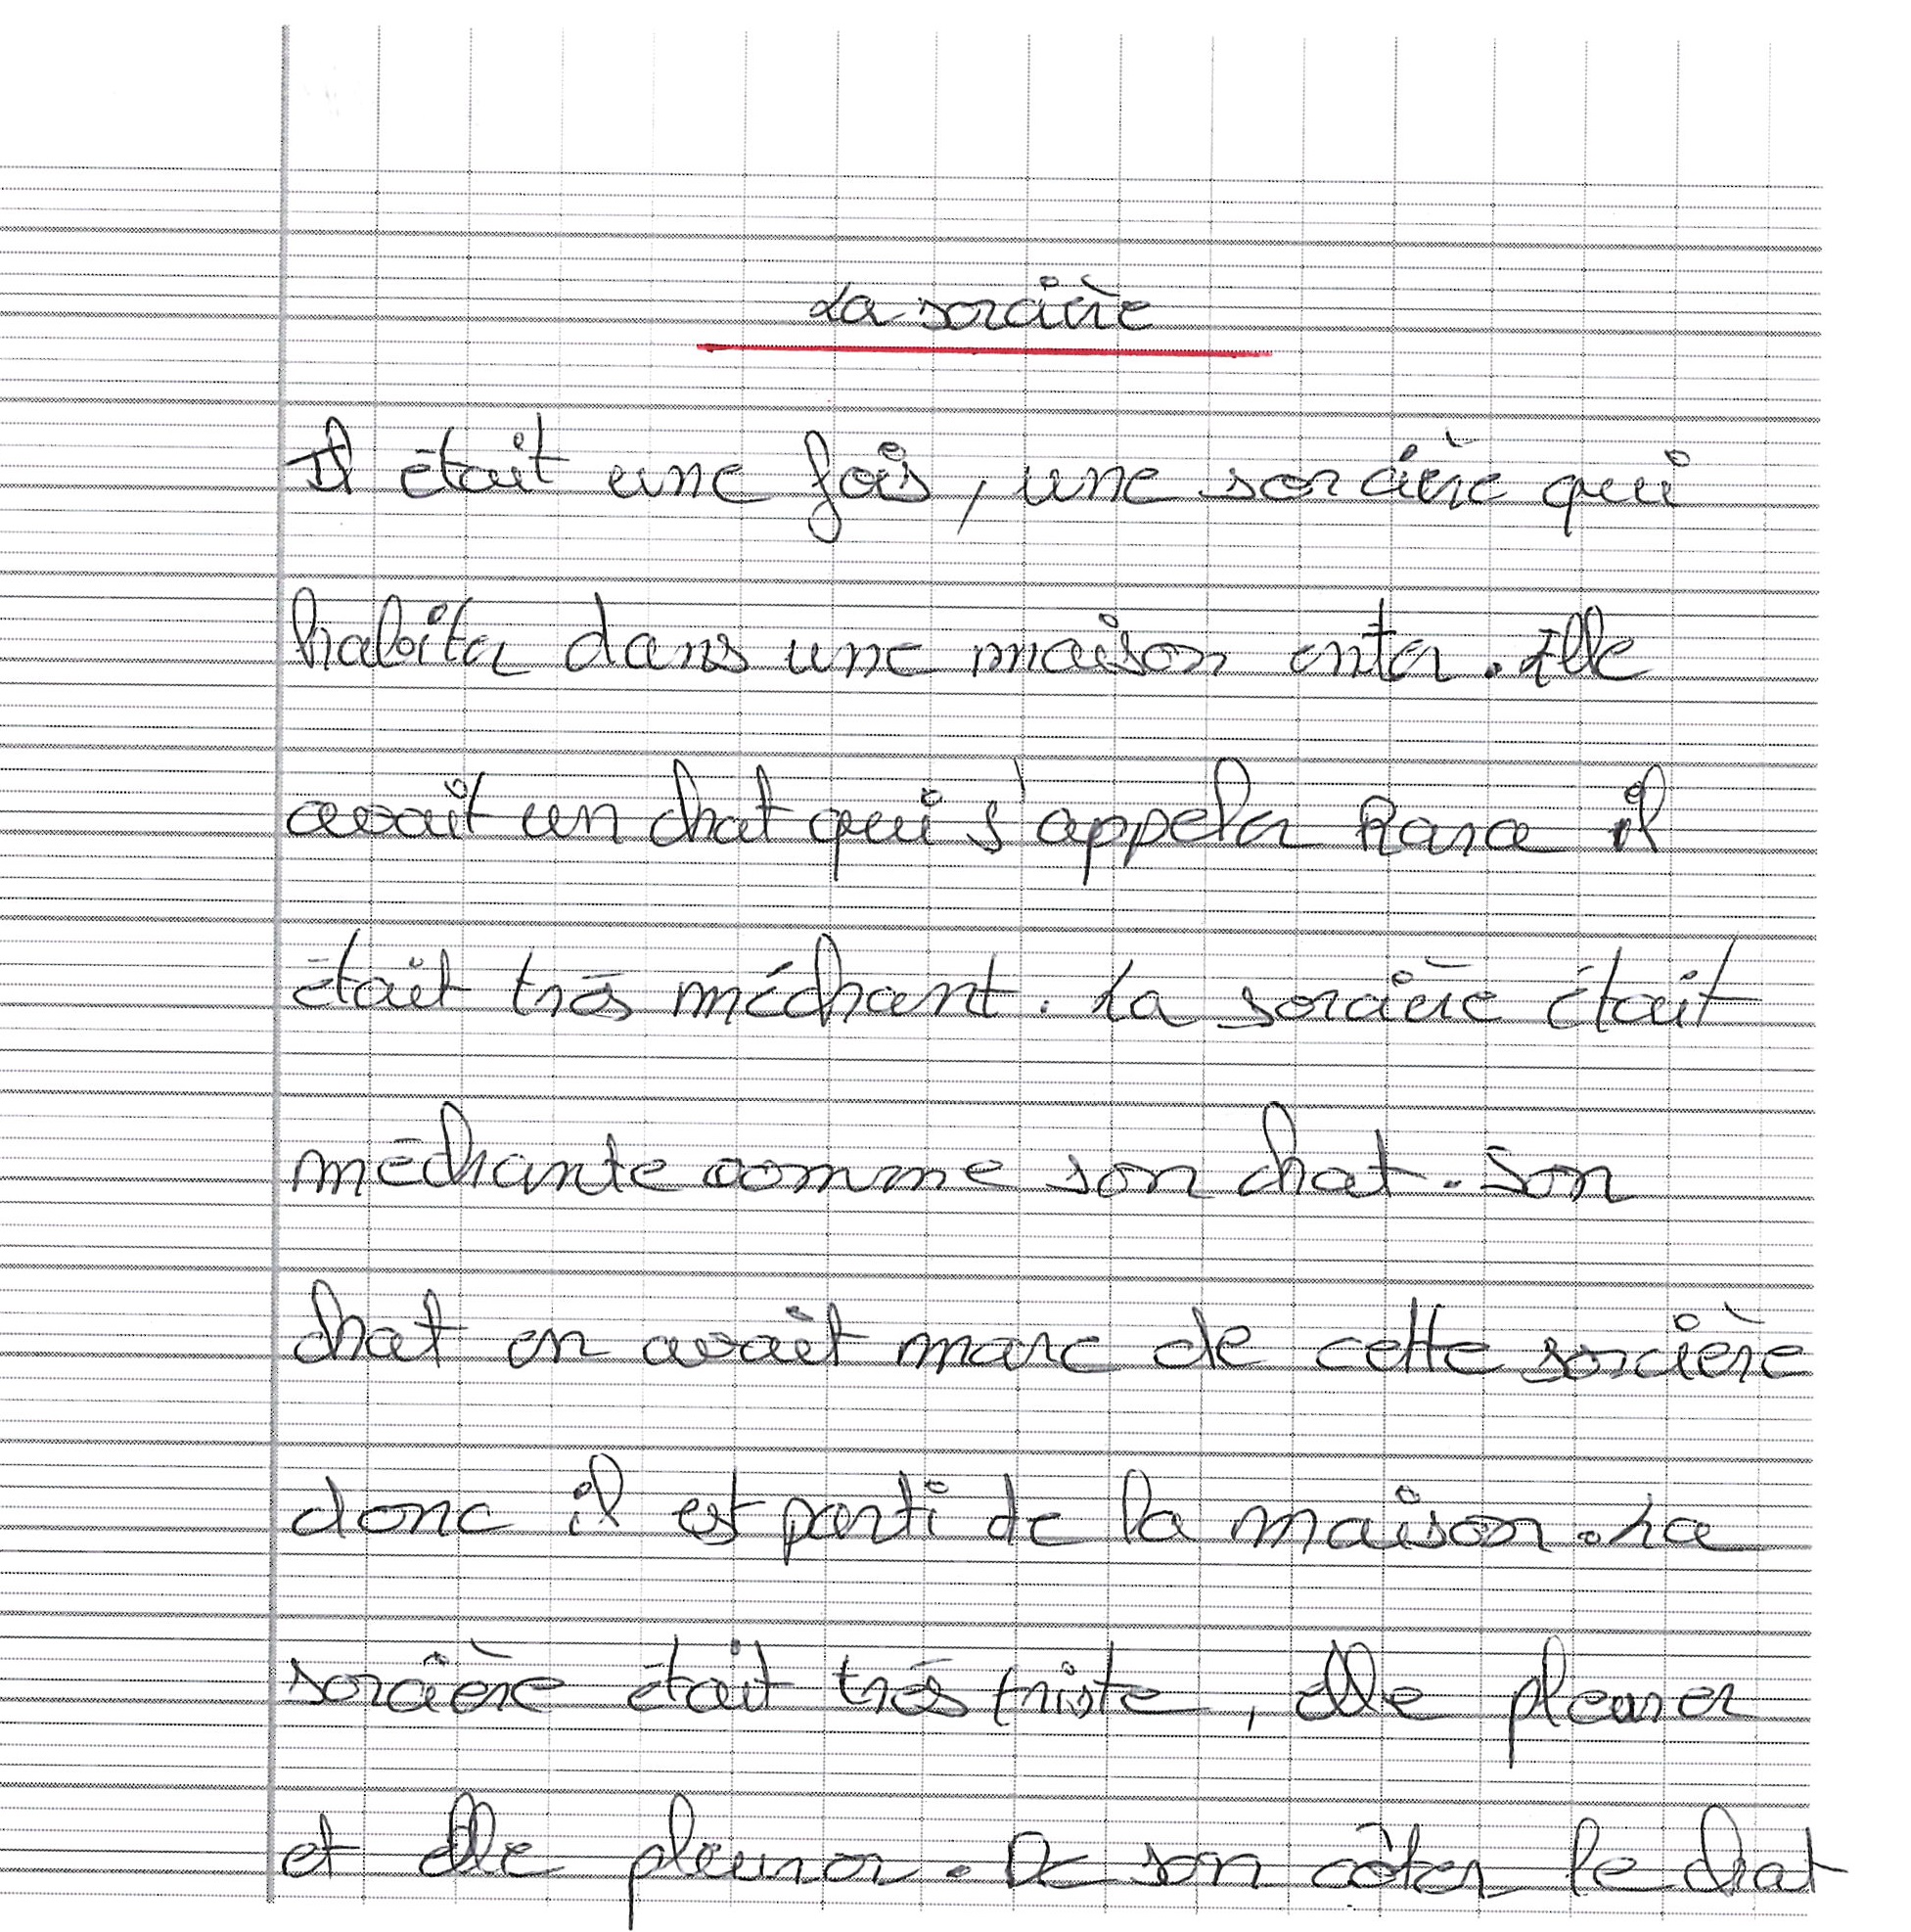 La sorcière
Il était une fois, une sorcière qui
habiter dans une maison enter. Elle
avait un chat qui s'appeler Rara il
était très méchant. La sorcière était
méchante comme son chat. Son
chat en avait marc de cette sorcière
donc il est parti de la maison. La
sorcière était très triste, elle pleurer
et elle pleurer. De son côter le chat